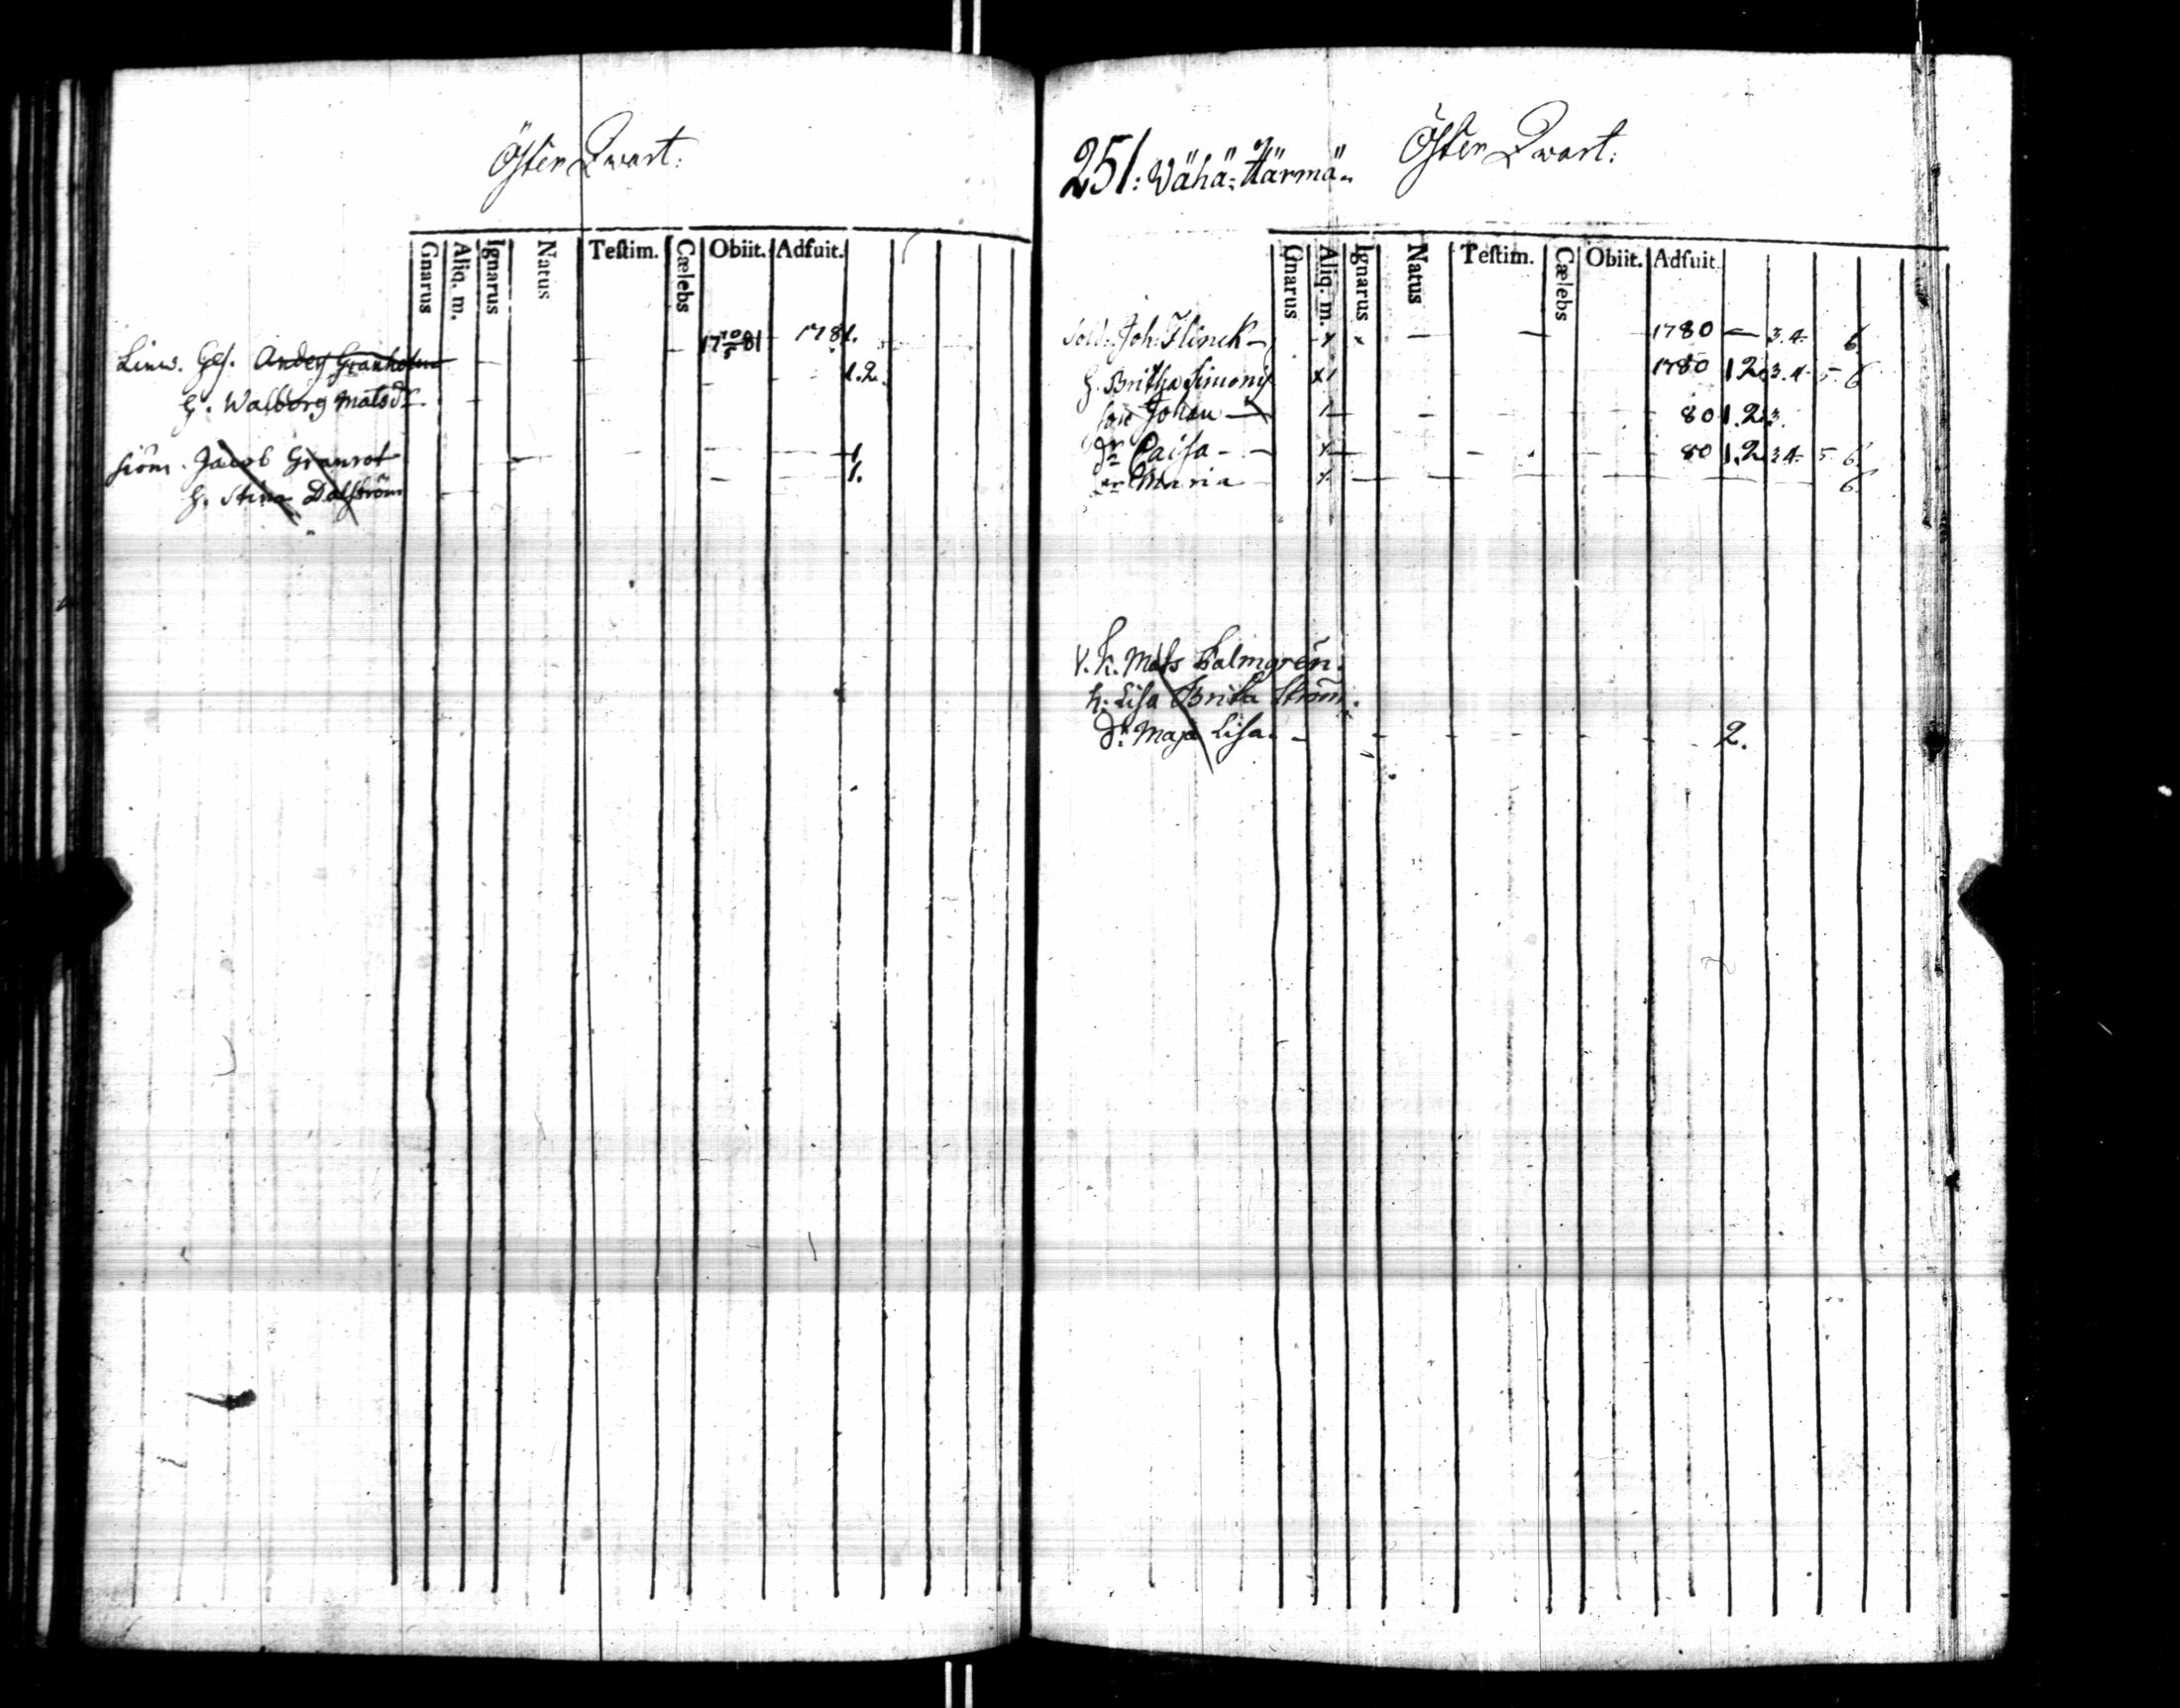 Östen Qwart:
Gnarus Aliq. m. Ignarus Natus Testim. Cælebs Obiit. Adfuit.
Linw. Ges. Anders Granholm — — — — 17 10/5 81 1781.
H. Walborg Matsdr. — — — 1.2.
Siöm. Jacob Granrot — — — — 1.
H. Stina Dalström — — — 1.
251: Wähä-Härmä. Östen Qwart:
Gnarus Aliq. m. Ignarus Natus Testim. Cælebs Obiit. Adfuit.
Sold. Joh. Flinck — x — — 1780 — 3.4. 6.
H. Britha Simonis x 1780 1 2 3.4. 5 6
son Johan — 80 1.2 3.
Dr Caisa — x — — 80 1.2 3 4. 5 6
Dr Maria x — — — 6
V. K. Mats Palmgren.
h: Lisa Brita Ström.
Dr Maja Lisa. — — — 2.